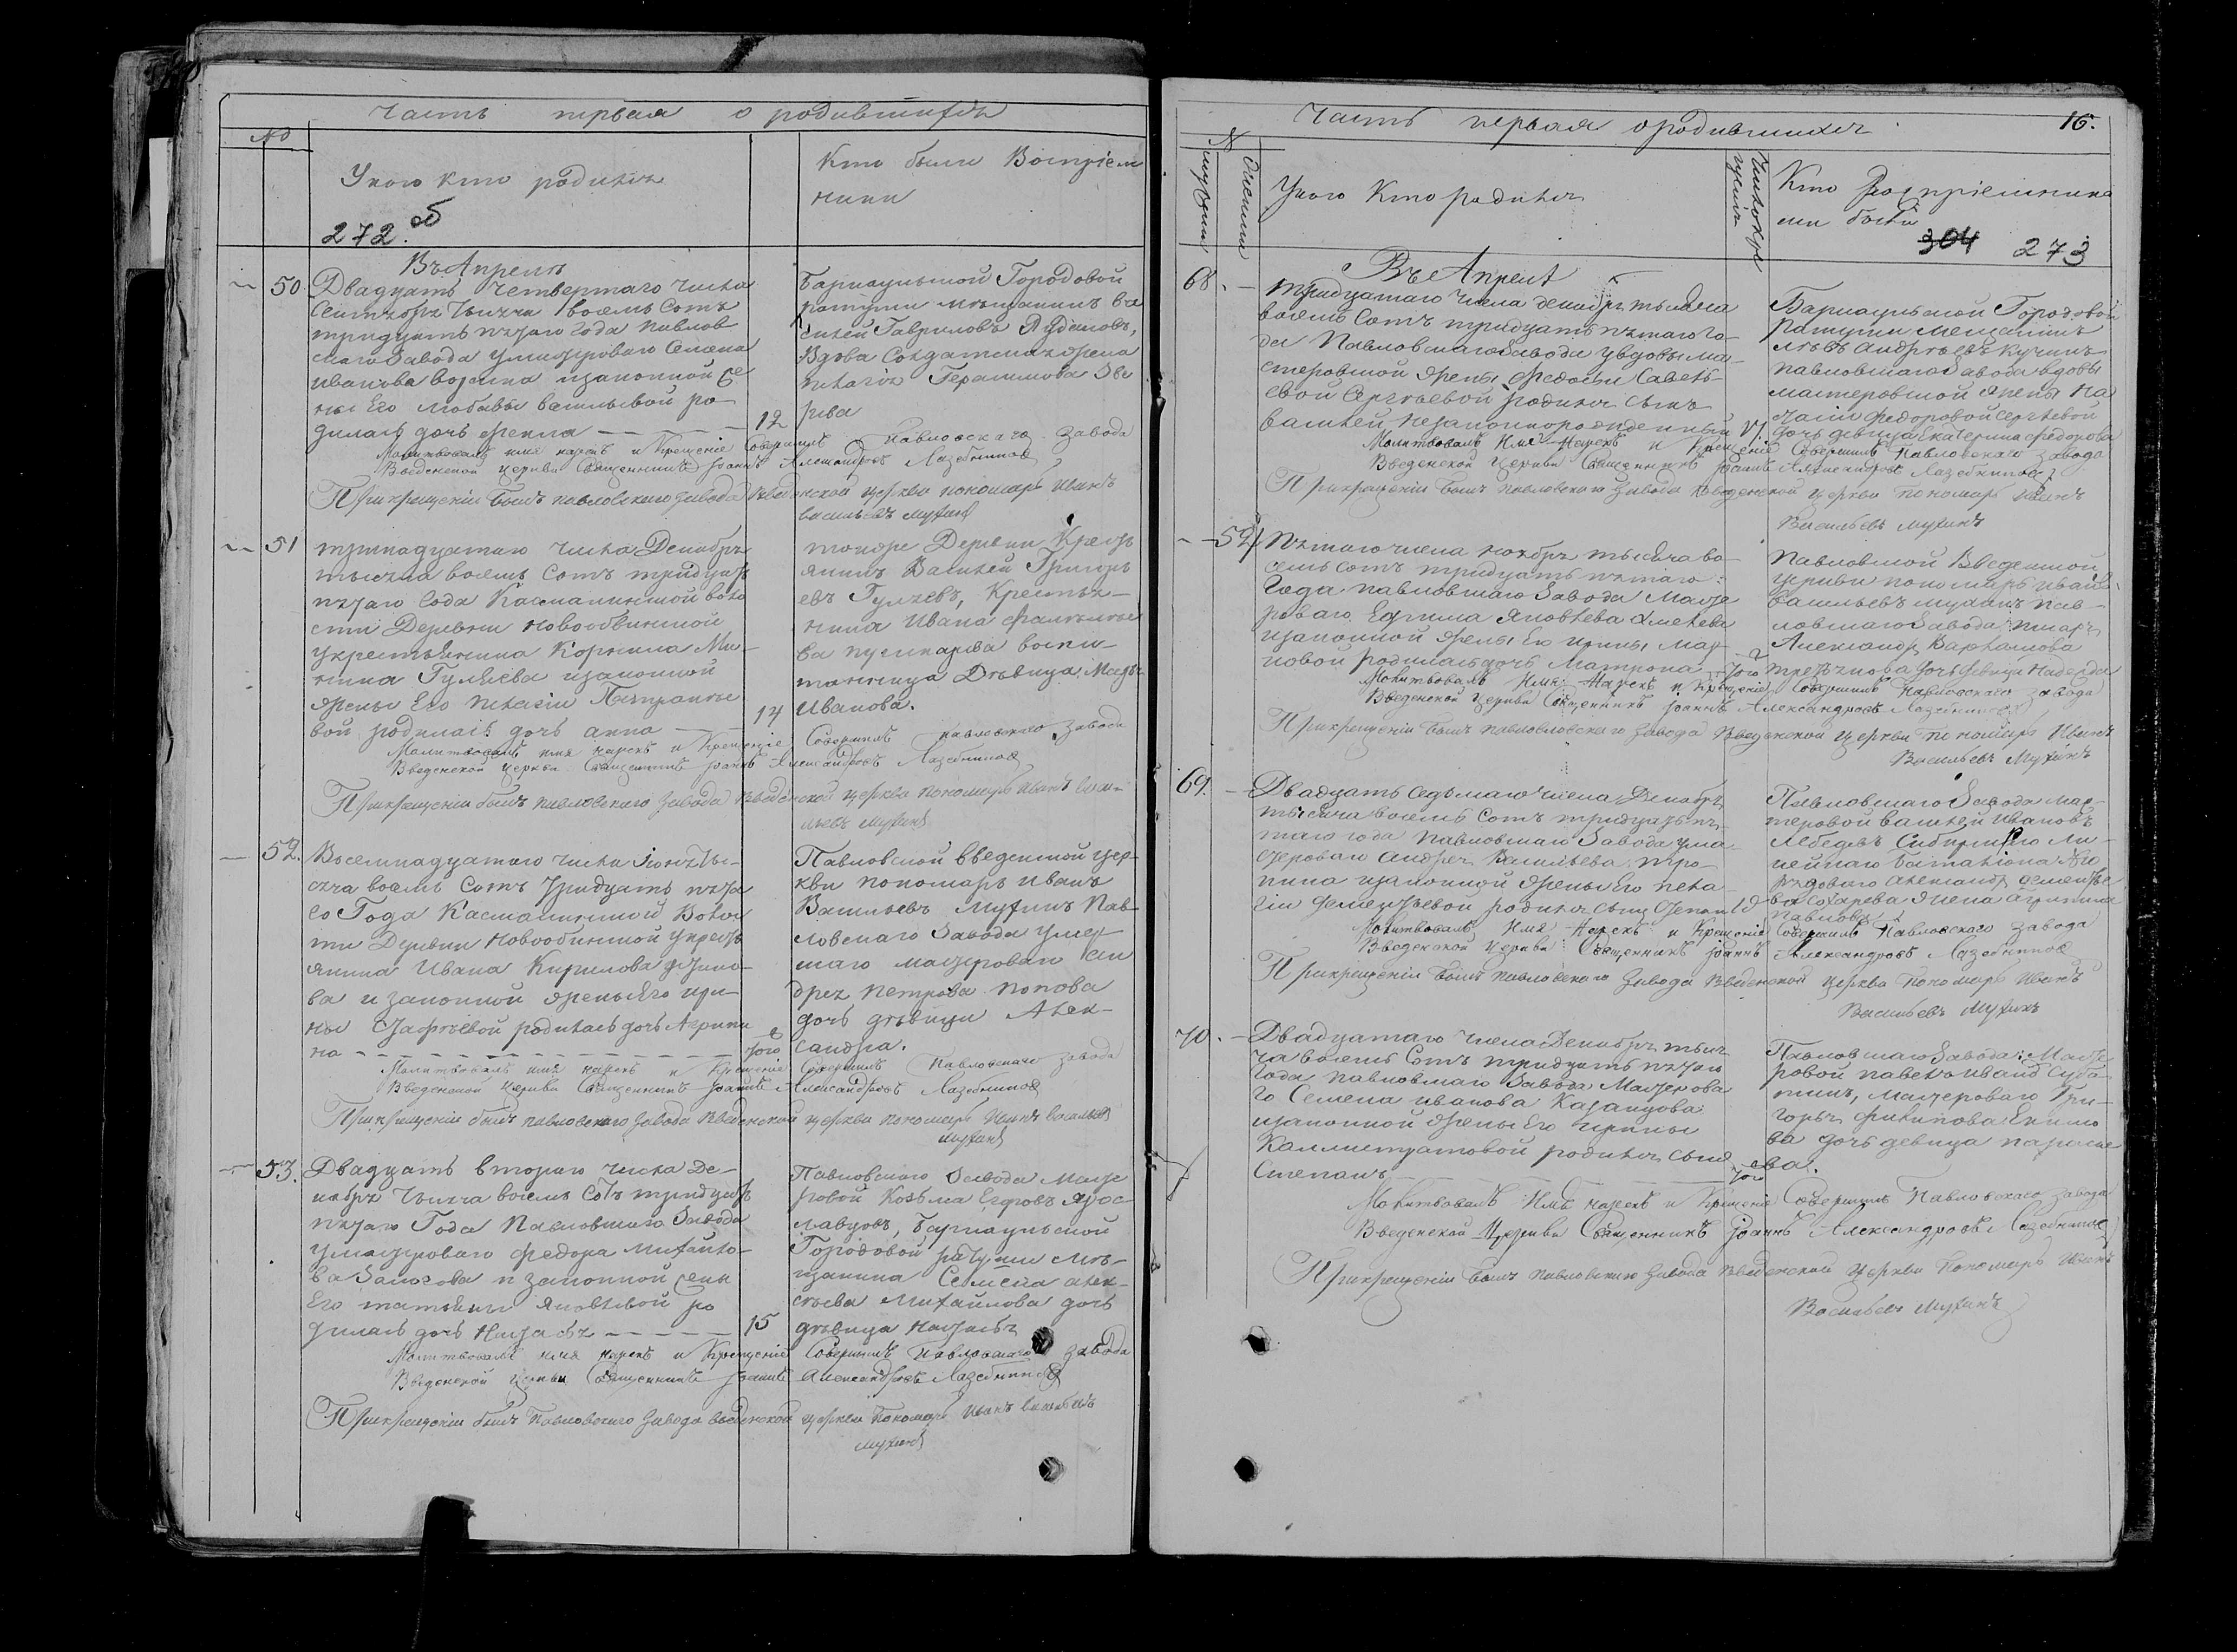 Часть первая о родившихся
№
У кого кто родился
Кто были Воспрiем
ники
272. об
Въ Апреле
50. Двадцать четвертаго числа
восемь сотъ
тридцать пятаго года Павлов
скаго завода Семена
Иванова законной же
ны Его любавы васильевой ро
дилась дочь Фекла 12
Барнаульской Городовой
ратуши мещанинъ Ва
силей Гавриловъ
Вдова Солдатская жена
Пелагея Герасимова Зве
рева
Молитвовалъ имя нарекъ и Крещенiе Совершилъ Павловскаго завода
Введенской Церкви Священникъ Iоаннъ Александровъ Лазебников
При крещенiи былъ павловскаго завода введенской церкви пономарь Иванъ
васильевъ мухинъ
51 тринадцатаго числа Декабря
тысяча восемь сотъ тридцать
пятаго года Касмалинской воло
сти Деревни новообвинской
у крестьянина Корнила Ми
нина Гуляева законной
жены Его Пелагеи
вой родилась дочь анна 14
тойже Деревни Кресть
янинъ Василей Григорь
евъ Гуляевъ, Крестья
нина Ивана
ва воспи
танница Девица
Иванова.
Молитвовалъ имя нарекъ и Крещенiе Совершилъ павловскаго завода
Введенской Церкви Священникъ Iоаннъ Александровъ Лазебников
При крещенiи былъ павловскаго завода введенской церкви пономарь Иванъ васи
льевъ мухинъ
52. Восемнадцатаго числа
сяча восемь Сотъ тридцать пята
го Года Касмалинской Волос
ти Деревни новообвинской у кресть
янина Ивана Кирилова
ва и законной жены Его ири
ны родилась дочь Агрипи
на того
Павловской введенской цер
кви пономарь иванъ
Васильевъ Мухинъ Пав
ловскаго завода умер
шаго мастероваго Ан
дрея Петрова попова
дочь девица Алек
сандра.
Молитвовалъ имя нарекъ и Крещенiе Совершилъ Павловскаго завода
Введенской Церкви Священникъ Iоаннъ Александровъ Лазебников
При крещенiи былъ павловскаго завода введенской церкви пономарь Иванъ васильев
мухинъ
53. Двадцать втораго числа Де
кабря восемь Сотъ тридцать
пятаго Года Павловскаго завода
у мастероваго Федора Михайло
ва и законной жены
Его татьяны Яковлевой ро
дилась дочь 15
Павловскаго завода масте
ровой Козьма Егоровъ Ярос
лавцовъ, Барнаульской
Городовой ратуши ме
щанина Семена алек
сеева Михайлова дочь
девица
Молитвовалъ имя нарекъ и Крещенiе Совершилъ Павловскаго завода
Введенской Церкви Священникъ Iоаннъ Александровъ Лазебников
При крещенiи былъ Павловскаго завода введенской церкви Пономарь Иванъ васильевъ
мухинъ
Часть первая о родившихся
16.
№
мужеска
женска
У кого Кто родился
Число крещ
Кто Воспрiемника
ми были
304 273
Въ Апреле
68. тридцатаго числа декабря тысяча
восемь Сотъ тридцать пятаго го
да Павловскаго завода у вдовы ма
стеровской жены Федосьи Савель
евой Сергеевой родился сынъ
василей незаконнорожденный
Барнаульской Городовой
Ратуши мещанинъ
левъ андреевъ кучинъ
павловскаго завода вдовы
мастеровской жены На
талiи Федоровой сергеевой
дочь девица Екатерина Федорова
Молитвовалъ Имя Нарекъ и Крещенiе Совершилъ Павловскаго завода
Введенской Церкви Священникъ Iоаннъ Александровъ Лазебников
При крещенiи былъ павловскаго завода введенской церкви пономарь Иванъ
Васильевъ мухинъ
54 Пятаго числа ноября тысяча во
семь сотъ тридцать пятаго
Года павловскаго завода Масте
роваго Ефима Яковлева
законной жены Его ирины Мар
ковой родилась дочь Матрона того
Павловской Введенской
церкви пономарь иванъ
васильевъ мухинъ пав
ловскаго завода писаря
Александр
дочь девица Надежда
Молитвовалъ Имя Нарекъ и Крещенiе Совершилъ Павловскаго завода
Введенской Церкви Священникъ Iоаннъ Александровъ Лазебников
При крещенiи былъ павловскаго завода Введенской Церкви пономарь Иванъ
Васильевъ Мухинъ
69. Двадцать седьмаго числа Декабря
тысяча восемь Сотъ тридцать пя
таго года павловскаго завода у ма
стероваго андрея Васильева
пина законной жены Его пела
геи родился сынъ Степан
Павловскаго завода мас
теровой василей Ивановъ
Лебедевъ Сибирскаго Ли
нейнаго баталiона
рядоваго александр
ва Сохарева жена агрипина
Павлова
Молитвовалъ Имя Нарекъ и Крещенiе Совершилъ Павловскаго завода
Введенской Церкви Священникъ Iоаннъ Александровъ Лазебников
При крещенiи былъ павловскаго завода Введенской церкви Пономарь Иванъ
Васильевъ Мухинъ
70. Двадцатаго числа Декабря тыся
ча восемь Сотъ тридцать пятаго
Года павловскаго завода Мастерова
го Семена иванова Казанцова
законной жены Его ирины
Каллистратовой родился сынъ
Степанъ того
Павловскаго завода Масте
ровой павелъ иванов Суба
тинъ, мастероваго Гри
горья филипова
ва дочь девица параске
ва.
Молитвовалъ Имя нарекъ и Крещенiе Совершилъ Павловскаго завода
Введенской Церкви Священникъ Iоаннъ Александровъ Лазебников
При крещенiи былъ павловскаго завода введенской церкви Пономарь Иванъ
Васильевъ Мухинъ